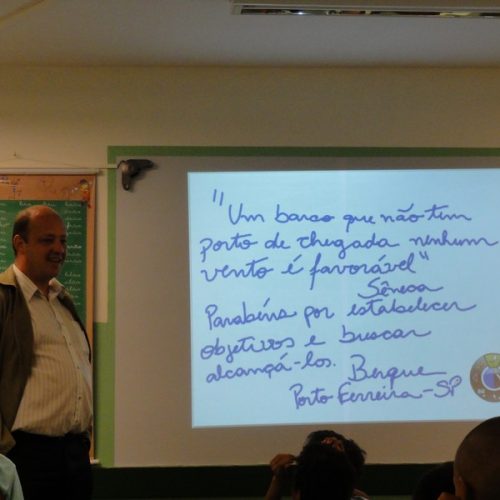 "Um barco que não tem
porto de chegada nenhum
vento é favorável"
Sêneca
Parabéns por estabelecer
objetivos e buscar
alcançá-los. Berque
Porto Ferreira-SP